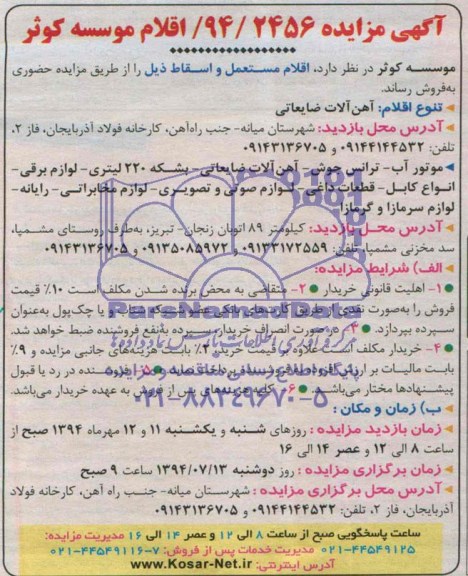 آگهی مزایده ۲۴۵۶ /۹۴/ اقلام موسسه کوثر
موسسه کوثر در نظر دارد، اقلام مستعمل و اسقاط ذیل را از طریق مزایده حضوری
به‌فروش رساند.
تنوع اقلام: آهن‌آلات ضایعاتی
آدرس محل بازدید: شهرستان میانه- جنب راه‌آهن، کارخانه فولاد آذربایجان، فاز ۲،
تلفن: ۰۹۱۴۴۱۴۴۵۳۲ و ۰۹۱۴۳۱۳۶۷۰۵
موتور آب- ترانس جوش- آهن آلات ضایعاتی- بشکه ۲۲۰ لیتری- لوازم برقی-
انواع کابل- قطعات داغی- لوازم صوتی و تصویری- لوازم مخابراتی- رایانه-
لوازم سرمازا و گرمازا
آدرس محل بازدید: کیلومتر ۸۹ اتوبان زنجان- تبریز، به‌طرف روستای مشمپا،
سد مخزنی مشمپا، تلفن: ۰۹۱۳۳۱۷۲۵۵۹ و ۰۹۱۳۵۰۸۵۹۷۲ و ۰۹۱۴۳۱۳۶۷۰۵
الف) شرایط مزایده:
۱- اهلیت قانونی خریدار ۲- متقاضی به محض برنده شدن مکلف است ۱۰٪ قیمت
فروش را به‌صورت نقدی از طریق کارت‌های بانکی عضو شبکه شتاب و یا چک‌پول به‌عنوان
سپرده بپردازد. ۳- در صورت انصراف خریدار، سپرده به‌نفع فروشنده ضبط خواهد شد.
۴- خریدار مکلف است علاوه بر قیمت خرید، ۲٪ بابت هزینه‌های جانبی مزایده و ۹٪
بابت مالیات بر ارزش افزوده به فروشنده پرداخت نماید ۵- فروشنده در رد یا قبول
پیشنهادها مختار می‌باشد. ۶- کلیه هزینه‌های پس از فروش به عهده خریدار می‌باشد.
۰۲۱-۸۸۳۴۹۶۷۰-۵
ب) زمان و مکان :
زمان بازدید مزایده : روزهای شنبه و یکشنبه ۱۱ و ۱۲ مهرماه ۱۳۹۴ صبح از
ساعت ۸ الی ۱۲ و عصر ۱۴ الی ۱۶
زمان برگزاری مزایده : روز دوشنبه ۱۳۹۴/۰۷/۱۳ ساعت ۹ صبح
آدرس محل برگزاری مزایده : شهرستان میانه- جنب راه آهن، کارخانه فولاد
آذربایجان، فاز ۲، تلفن: ۰۹۱۴۴۱۴۴۵۳۲ و ۰۹۱۴۳۱۳۶۷۰۵
ساعت پاسخگویی صبح از ساعت ۸ الی ۱۲ و عصر ۱۴ الی ۱۶ مدیریت مزایده:
۰۲۱-۴۴۵۴۹۱۲۵ مدیریت خدمات پس از فروش: ۷-۰۲۱-۴۴۵۴۹۱۱۶
آدرس اینترنتی: www.Kosar-Net.ir